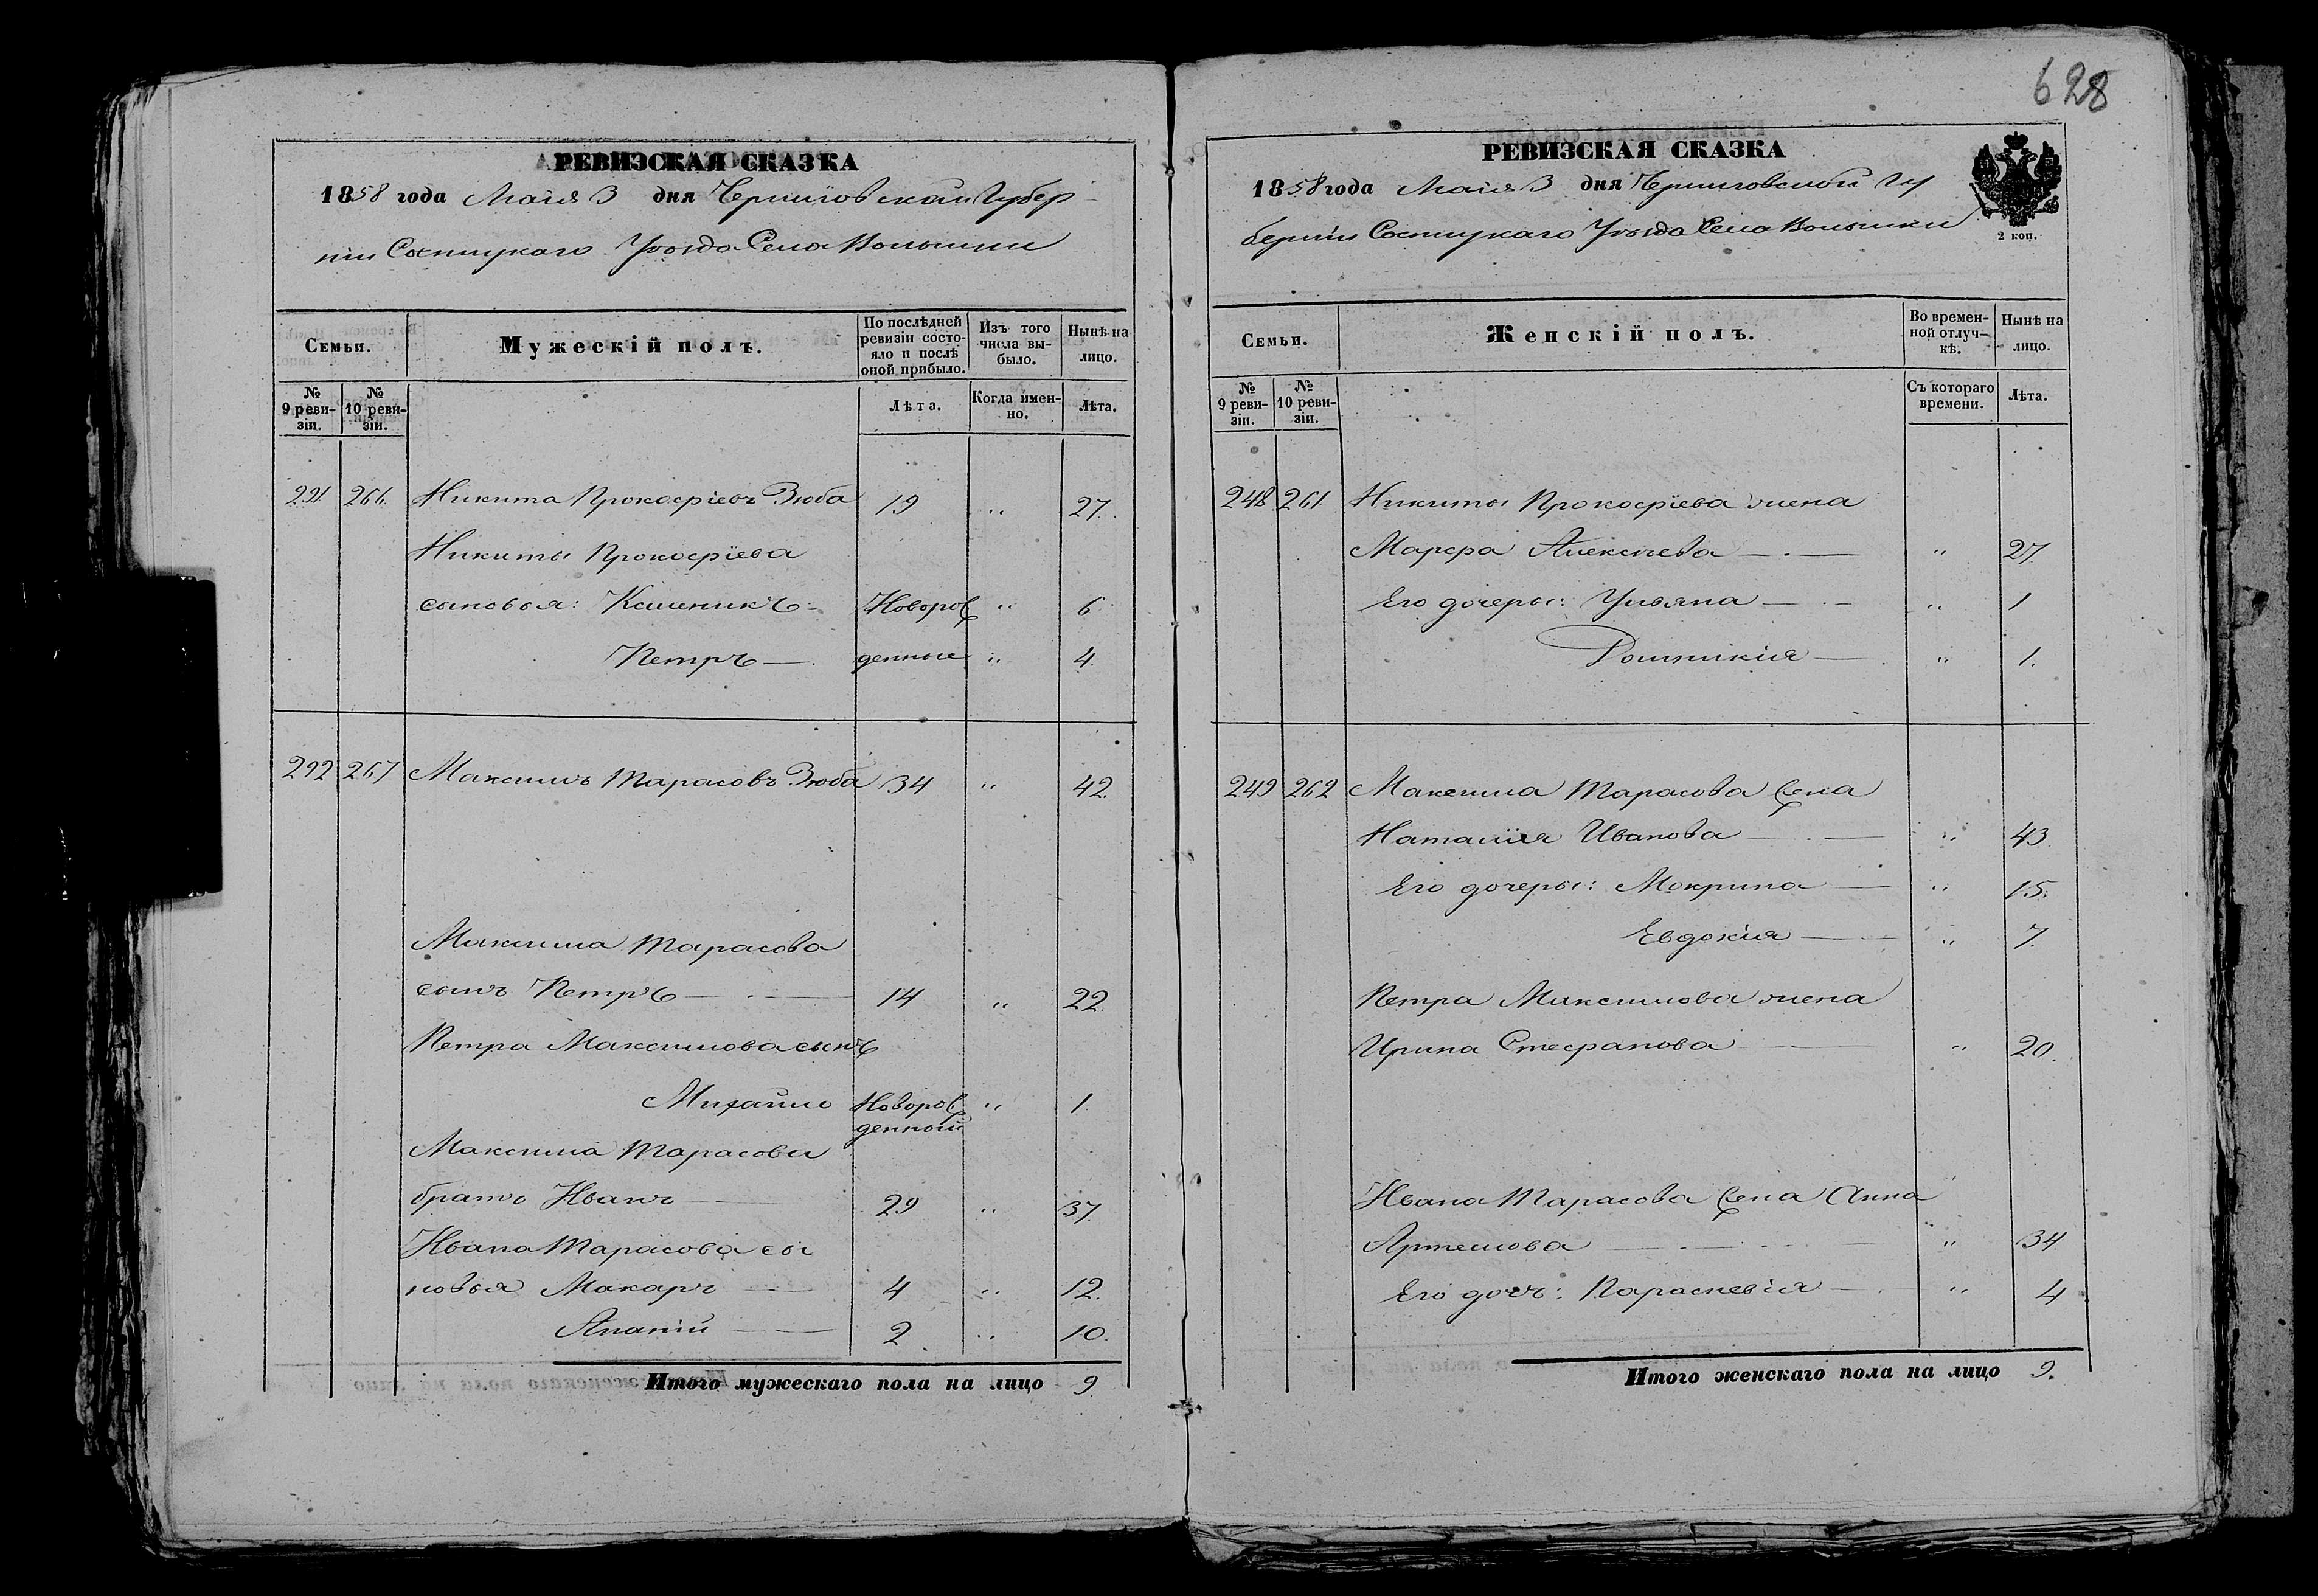 628
РЕВИЗСКАЯ СКАЗКА
1858 года Мая 3 дня Черниговской Губер
ніи Сосницкаго Уѣзда Села Волынки
Семьи.
Мужескій полъ.
По послѣдней ревизіи состо-
яло и послѣ
оной прибыло.
Изъ того
числа вы-
было.
Нынѣ на
лицо.
№
9 реви-
зіи.
№
10 реви-
зіи.
Лѣта.
Когда имен-
но.
Лѣта.
291 266 Никита Прокофіевъ Зюба 19 " 27.
Никиты Прокофіева
сыновья: Калиникъ Новорож " 6
Петръ — денные " 4.
292 267 Максимъ Тарасовъ Зюба 34 " 42.
Максима Тарасова
сынъ Петръ — 14 " 22.
Петра Максимова сынъ
Михайло Новорож " 1.
денный
Максима Тарасова
братъ Иванъ — 29 " 37.
Ивана Тарасова сы
новья Макаръ — 4 " 12.
Ананій — 2 " 10.
Итого мужескаго пола на лицо 9
РЕВИЗСКАЯ СКАЗКА
1858 года Мая 3 дня Черниговской Гу
берніи Сосницкаго Уѣзда Села Волынки
2 коп.
Семьи.
Женскій полъ.
Во времен-
ной отлуч-
кѣ.
Нынѣ на
лицо.
№
9 реви-
зіи.
№
10 реви-
зіи.
Съ котораго
времени.
Лѣта.
248 261 Никиты Прокофіева жена
Марфа Алексѣева — " 27
Его дочеры: Ульяна — " 1
Домникія — " 1.
249 262 Максима Тарасова жена
Наталія Иванова — " 43
Его дочеры: Мокрина — " 15.
Евдокія — " 7.
Петра Максимова жена
Ирина Стефанова — " 20.
Ивана Тарасова жена Анна
Артемова — " 34
Его дочь: Параскевія — " 4
Итого женскаго пола на лицо 9.